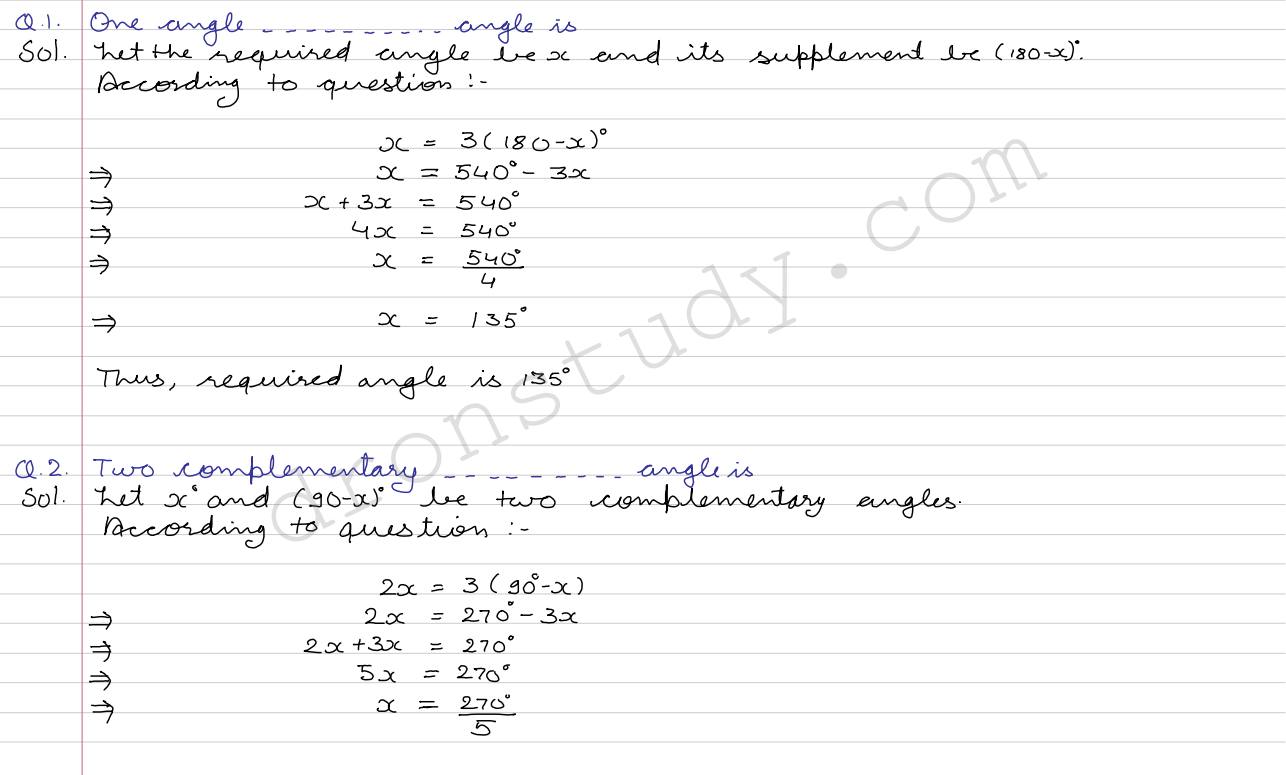 Q.1. One angle ----------- angle is
Sol. Let the required angle be x and its supplement be (180-x)°.
According to question :-
x = 3(180-x)°
⇒ x = 540° - 3x
⇒ x + 3x = 540°
⇒ 4x = 540°
⇒ x = 540°/4
⇒ x = 135°
Thus, required angle is 135°
Q.2. Two complementary --------- angle is
Sol. Let x° and (90-x)° be two complementary angles.
According to question :-
2x = 3(90°-x)
⇒ 2x = 270° - 3x
⇒ 2x + 3x = 270°
⇒ 5x = 270°
⇒ x = 270°/5
dronstudy.com